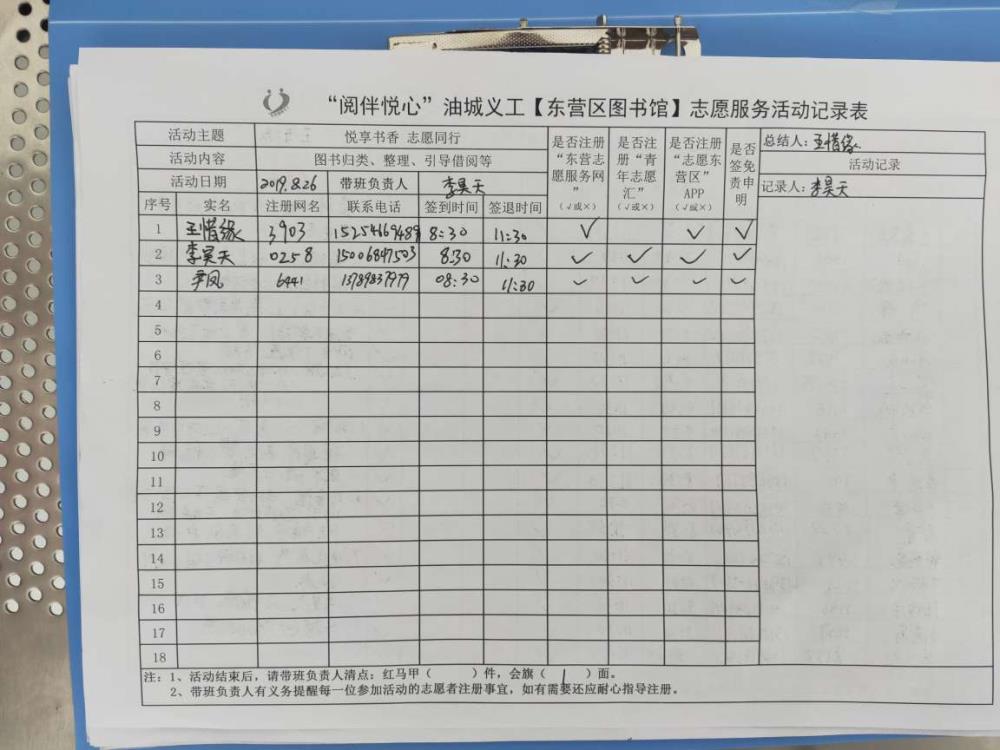 “阅伴悦心”油城义工【东营区图书馆】志愿服务活动记录表
活动主题 悦享书香 志愿同行 是否注册“东营志愿服务网”（√或×） 是否注册“青年志愿汇”（√或×） 是否注册“志愿东营区”APP（√或×） 是否签免责申明 总结人：王惜缘
活动内容 图书归类、整理、引导借阅等 活动记录
活动日期 2019.8.26 带班负责人 李昊天 记录人：李昊天
序号 实名 注册网名 联系电话 签到时间 签退时间
1 王惜缘 3903 15254669489 8:30 11:30 √ √ √
2 李昊天 0258 15006847503 8:30 11:30 √ √ √ √
3 季凤 6441 13789837979 08:30 11:30 √ √ √ √
4
5
6
7
8
9
10
11
12
13
14
15
16
17
18
注：1、活动结束后，请带班负责人清点：红马甲（ ）件，会旗（ 1 ）面。
2、带班负责人有义务提醒每一位参加活动的志愿者注册事宜，如有需要还应耐心指导注册。